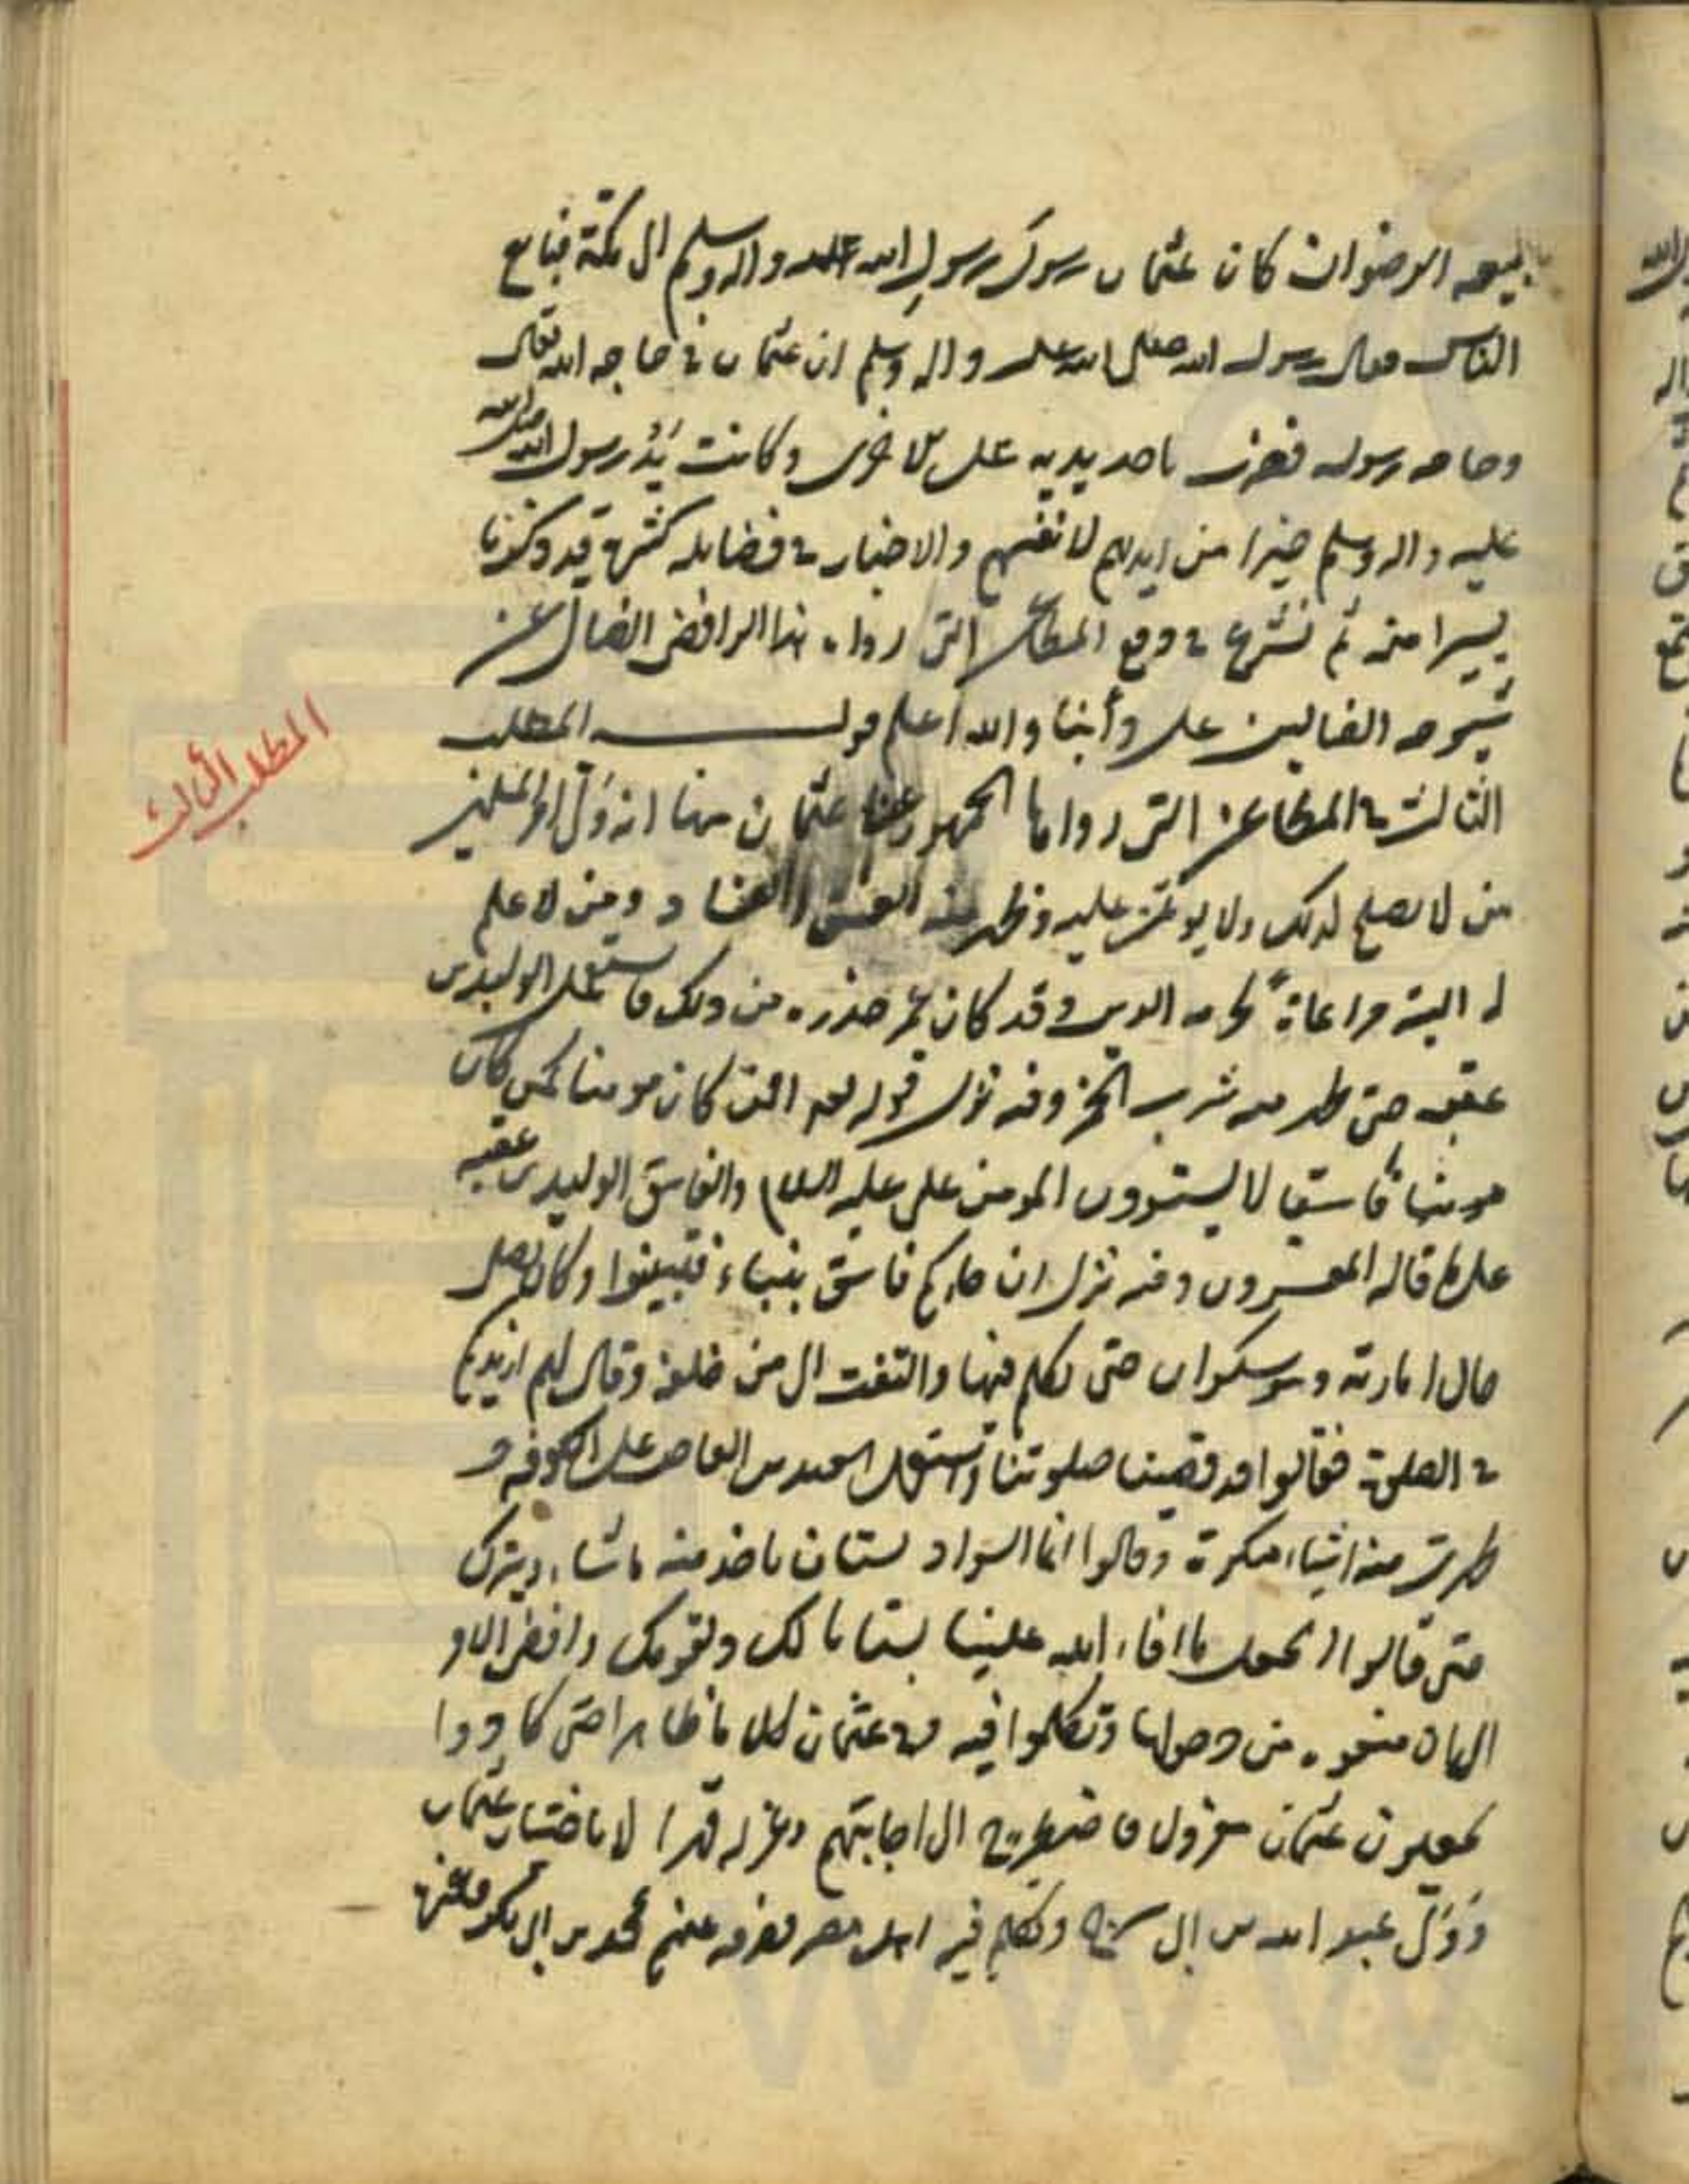 ببيعه الرضوان كان عثمان رسول رسول الله عليه واله وسلم الى مكة فبايع
الناس فقال رسول الله صلى الله عليه واله وسلم ان عثمان في حاجه الله تعالى
وحاجه رسوله فضرب باحد يديه على الاخرى وكانت يَدُ رسول الله صلى الله
عليه واله وسلم خيرا من ايديهم لانفسهم والاخبار في فضايله كثيرة قد ذكرنا
يسيرا منه ثم نشرع في دفع المطاعن التى رواه هذا الرافضى الضال عن
شيوخه الضالين على دأبنا والله اعلم قوله المطلب
المطلب الثالث
الثالث في المطاعن التى رواها الجمهور عن عثمان منها انه ولّى امر المسلمين
من لا يصلح لذلك ولا يؤتمن عليه وظهر منه الفسق والفساد ومن لا علم
له البتة مراعاةً لحرمه القرابه وقد كان عمر حذره من ذلك فاستعمل الوليد بن
عقبه حتى ظهر منه شرب الخمر وفيه نزل قوله تعالى افمن كان مومنا كمن كان
مومنا فاسقا لا يستوون المومن على عليه السلام والفاسق الوليد بن عقبه
على ما قاله المفسرون وفيه نزل ان جاءكم فاسق بنباء فتبينوا وكان يصلى
حال امارته وهو سكران حتى تكلم فيها والتفت الى من خلفه وقال لهم ازيدكم
في الصلوة فقالوا قد قضينا صلوتنا واستعمل سعيد بن العاص على الكوفه و
ظهرت منه اشياء منكرة وقالوا انما السواد بستان ياخذ منه ما شاء ويترك
حتى قالوا اتجعل ما افاء الله علينا بستانا لك ولقومك وافضى الامر
الى ان منعوه من دخولها وتكلموا فيه وفي عثمان كلاما ظاهرا حتى كادوا
يخلعون عثمان معزول فاضطر ح الى اجابتهم وعزله قهرا لا باختيار عثمان
وَوَلّى عبد الله بن ابى سرح وتكلم فيه اهل مصر فصرفه عنهم محمد بن ابى بكر